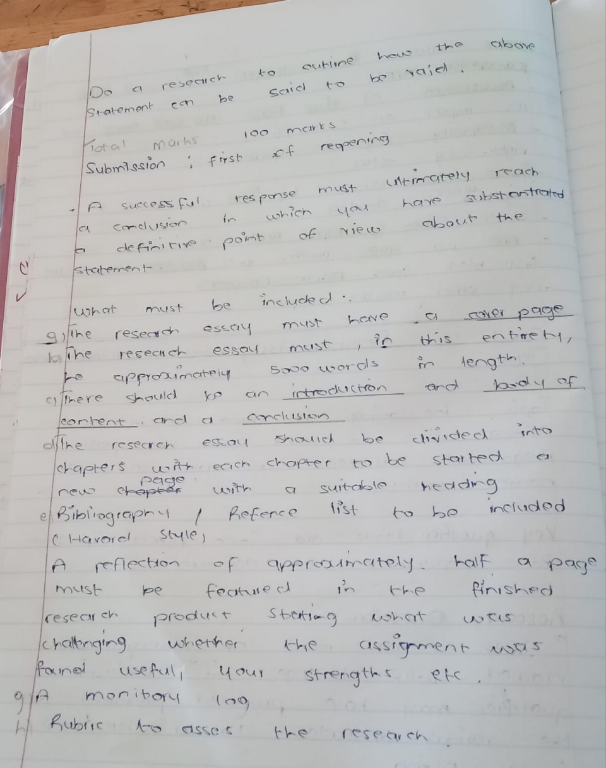 Do a research to outline how the above
statement can be said to be valid.
Total marks 100 marks
Submission : first of reopening
. A successful response must ultimately reach
a conclusion in which you have substantiated
a definitive point of view about the
statement.
What must be included :.
a) The research essay must have a cover page
b) The research essay must, in this entirety,
be approximately 5000 words in length.
c) There should be an introduction and body of
content and a conclusion
d) The research essay should be divided into
chapters with each chapter to be started a
new page with a suitable heading
e) Bibliography / Refence list to be included
( Havard style)
A reflection of approximately. half a page
must be featured in the finished
research product stating what was
challenging whether the assignment was
found useful, your strengths etc.
g) A monitory log
h) Rubric to asses the research.